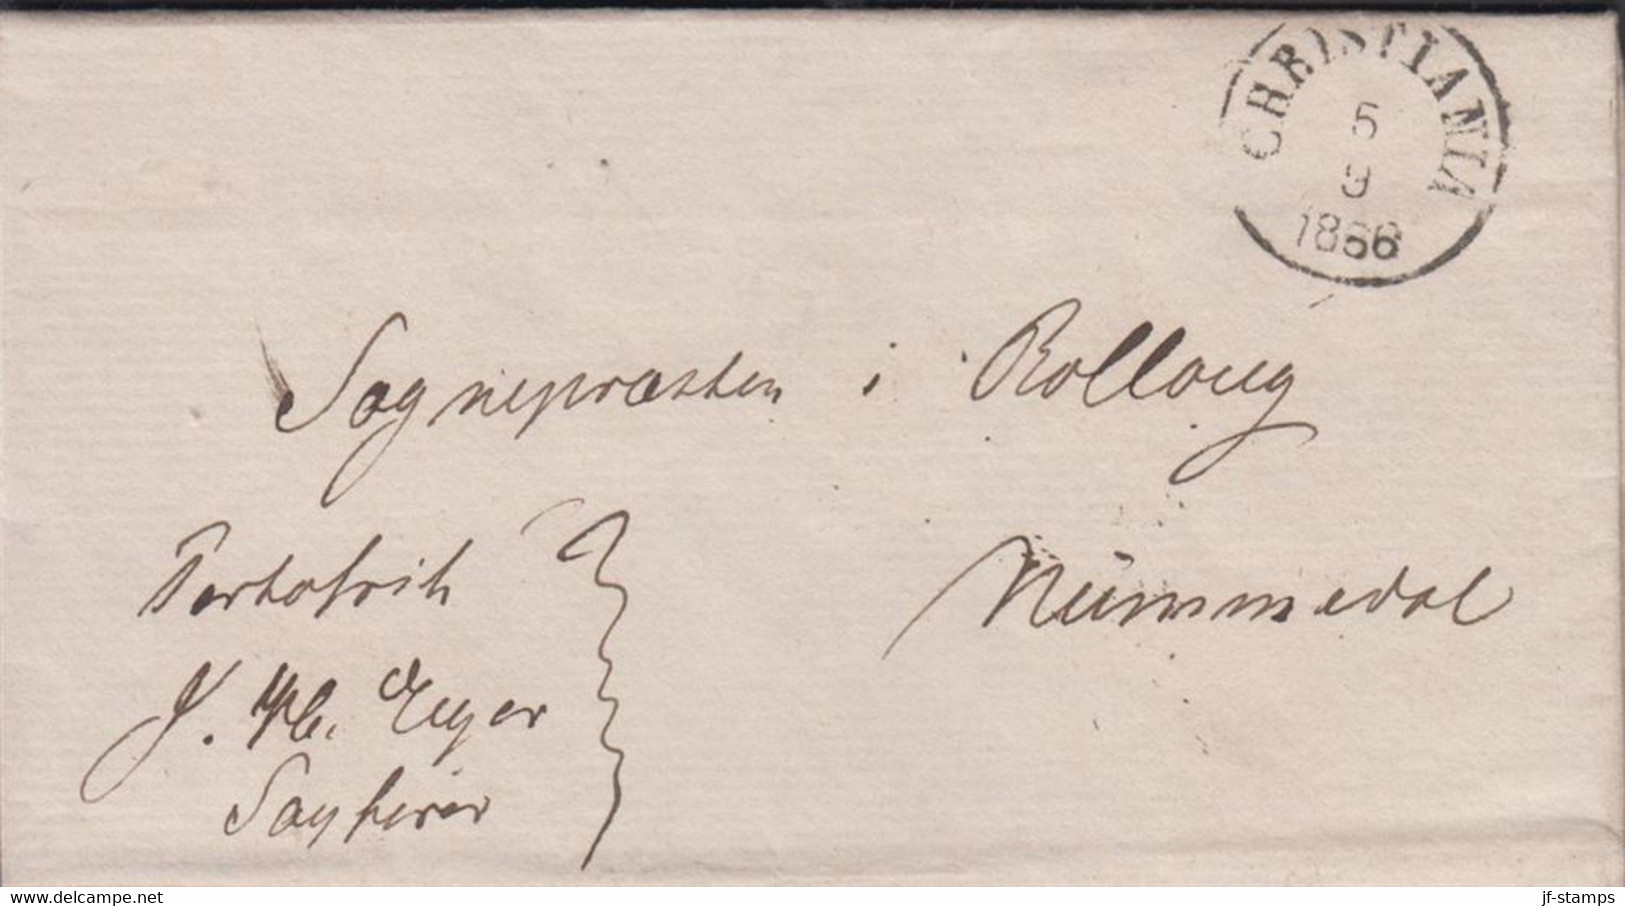 CHRISTIANIA
5
9
1866
Sognepræsten i Rolloug
Nummedal
Portofrit
J. Chr. Eger
Sagfører
delcampe.net
jf-stamps